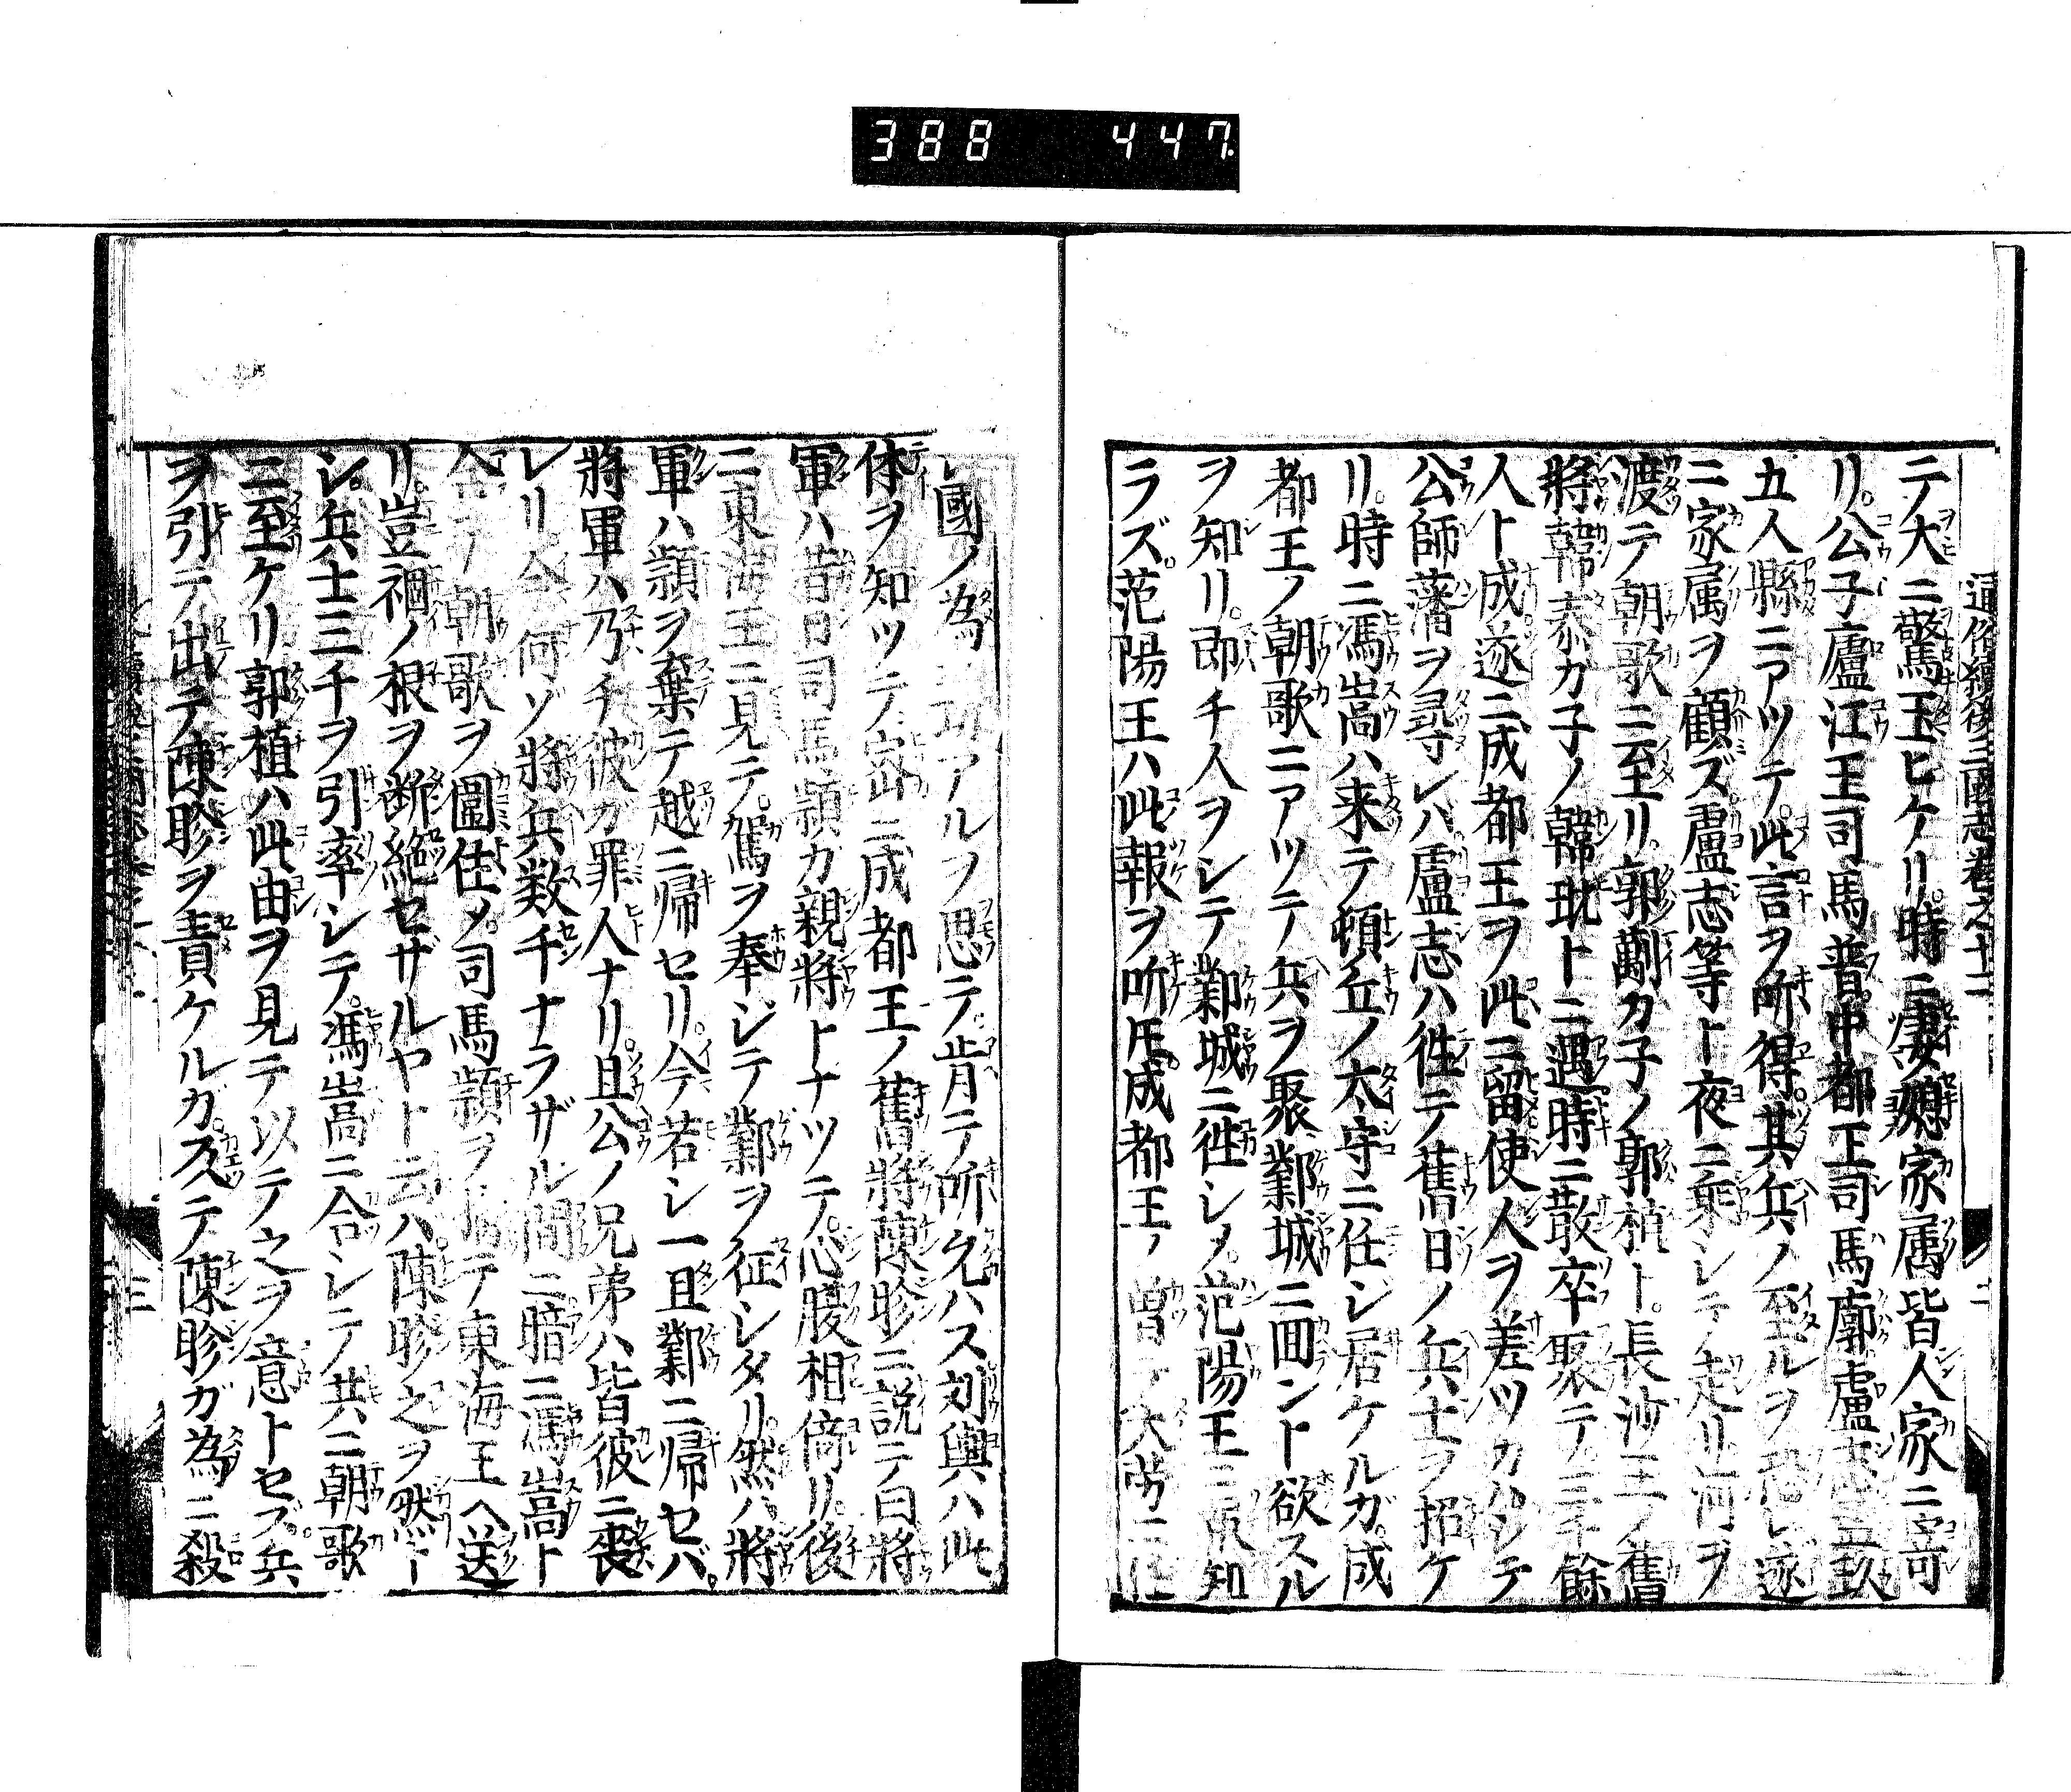 388 447
通俗續後三國志卷之十二
テ大ニ驚玉ヒケリ時ニ妻嫂家属皆人家ニ寄
リ公子廬江王司馬普中都王司馬廓盧志王玖
五人縣ニアツテ此言ヲ听得其兵ノ至ルヲ恐レ遂
ニ家属ヲ顧ズ盧志等ト夜ニ乗シテ走リ河ヲ
渡テ朝歌ニ至リ郭勱カ子ノ郭植ト長沙王ノ舊
將韓泰カ子ノ韓玭トニ遇時ニ散卒聚テ二千餘
人ト成遂ニ成都王ヲ此ニ留使人ヲ差ツカハシテ
公師藩ヲ尋レハ盧志ハ徃テ舊日ノ兵士ヲ招ケ
リ時ニ馮嵩ハ来テ頓丘ノ太守ニ任シ居ケルガ成
都王ノ朝歌ニアツテ兵ヲ聚鄴城ニ回ント欲スル
ヲ知リ即チ人ヲシテ鄴城ニ徃シメ范陽王ニ報知
ラズ范陽王ハ此報ヲ听成都王ノ曽テ大労
レ國ノ為ニ功アルヲ思テ肯テ听久ハス刘輿ハ此
体ヲ知ツテ密ニ成都王ノ舊將陳眕ニ説テ曰將
軍ハ昔日司馬頴カ親將トナツテ心腹相倚リ後
ニ東海王ニ見テ駕ヲ奉ジテ鄴ヲ征シタリ然ハ將
軍ハ頴ヲ棄テ越ニ帰セリ今若シ一旦鄴ニ帰セバ
將軍ハ乃チ彼ガ罪人ナリ且公ノ兄弟ハ皆彼ニ喪
レリ今何ゾ將兵数千ナラザル間ニ暗ニ馮嵩ト
合テ朝歌ヲ圍住メ司馬頴ヲ擒テ東海王ヘ送
リ豈禍ノ根ヲ断絶セザルヤト云ハ陳眕之ヲ然ト
シ兵士三千ヲ引率シテ馮嵩ニ合シテ共ニ朝歌
ニ至ケリ郭植ハ此由ヲ見テ以テ之ヲ意トセズ兵
ヲ引テ出テ陳眕ヲ責ケルガ及テ陳眕ガ為ニ殺